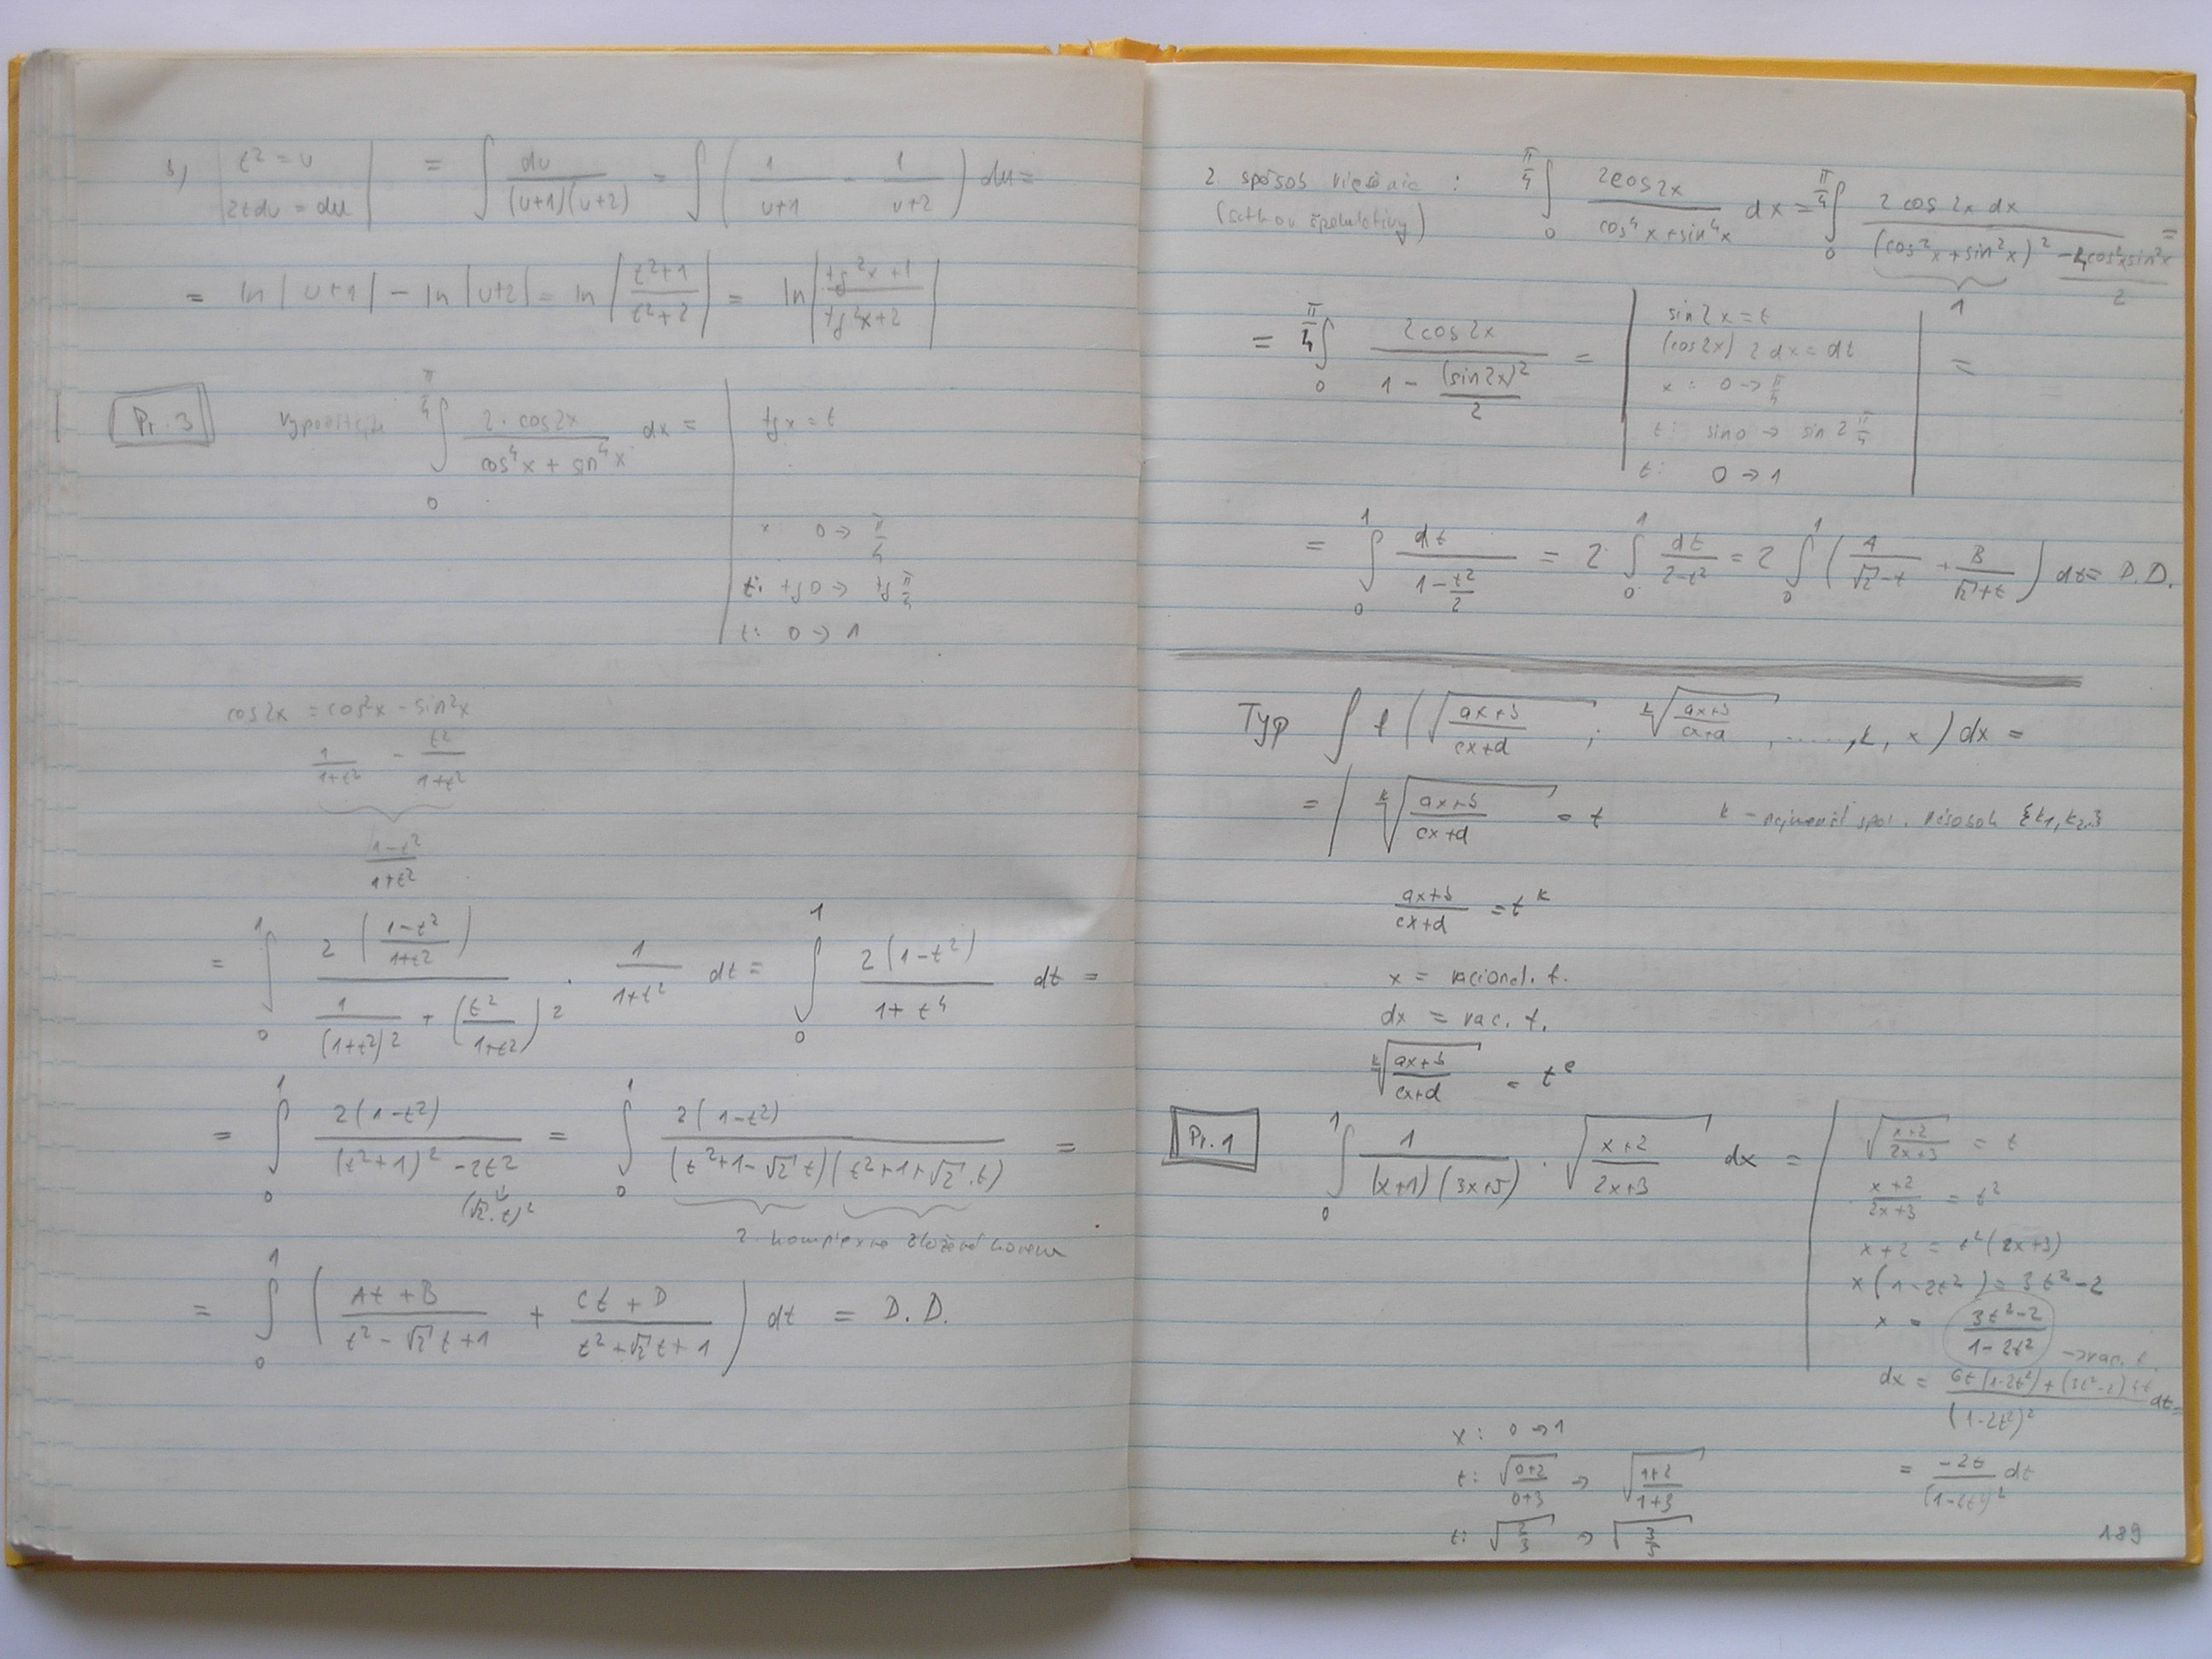 b) | t² = u
2t du = du | = ∫ du/((u+1)(u+2)) = ∫ (1/(u+1) - 1/(u+2)) du =
= ln|u+1| - ln|u+2| = ln|(t²+1)/(t²+2)| = ln|(tg²x+1)/(tg²x+2)|
Pr. 3 Vypočítajte ∫₀^(π/4) (2·cos2x)/(cos⁴x + sin⁴x) dx = | tgx = t
x 0 → π/4
t: tg0 → tg π/4
t: 0 → 1
cos2x = cos²x - sin²x
1/(1+t²) - t²/(1+t²)
(1-t²)/(1+t²)
= ∫₀¹ (2((1-t²)/(1+t²)))/(1/(1+t²)² + (t²/(1+t²))²) · 1/(1+t²) dt = ∫₀¹ (2(1-t²))/(1+t⁴) dt =
= ∫₀¹ (2(1-t²))/((t²+1)² - 2t²) = ∫₀¹ (2(1-t²))/((t²+1-√2 t)(t²+1+√2·t)) =
(√2·t)²
2. komplexne združené korene
= ∫₀¹ ((At+B)/(t²-√2 t+1) + (Ct+D)/(t²+√2 t+1)) dt = D.D.
2. spôsob riešenia : ∫₀^(π/4) (2cos2x)/(cos⁴x+sin⁴x) dx = ∫₀^(π/4) (2 cos 2x dx)/((cos²x+sin²x)² - (4cos²x sin²x)/2) =
1
= ∫₀^(π/4) (2cos2x)/(1 - (sin2x)²/2) = | sin2x = t
(cos2x) 2 dx = dt
x: 0 → π/4
t: sin0 → sin 2 π/4
t: 0 → 1 | =
= ∫₀¹ dt/(1 - t²/2) = 2·∫₀¹ dt/(2-t²) = 2 ∫₀¹ (A/(√2-t) + B/(√2+t)) dt = D.D.
Typ ∫ f(√((ax+b)/(cx+d)) ; ᵏ√((ax+b)/(cx+d)), ......, x) dx =
= | ᵏ√((ax+b)/(cx+d)) = t k - najmenší spol. násobok {k₁, k₂..}
(ax+b)/(cx+d) = tᵏ
x = racional. f.
dx = rac. f.
ᵏ√((ax+b)/(cx+d)) = tᵉ
Pr. 1 ∫₀¹ 1/((x+1)(3x+5)) · √((x+2)/(2x+3)) dx = | √((x+2)/(2x+3)) = t
(x+2)/(2x+3) = t²
x+2 = t²(2x+3)
x(1-2t²) = 3t²-2
x = (3t²-2)/(1-2t²) → rac. f.
dx = (6t(1-2t²)+(3t²-2)4t)/(1-2t²)² dt =
= -2t/(1-2t²)² dt
x: 0 → 1
t: √((0+2)/(0+3)) → √((1+2)/(1+3))
t: √(2/3) → √(3/5)
189